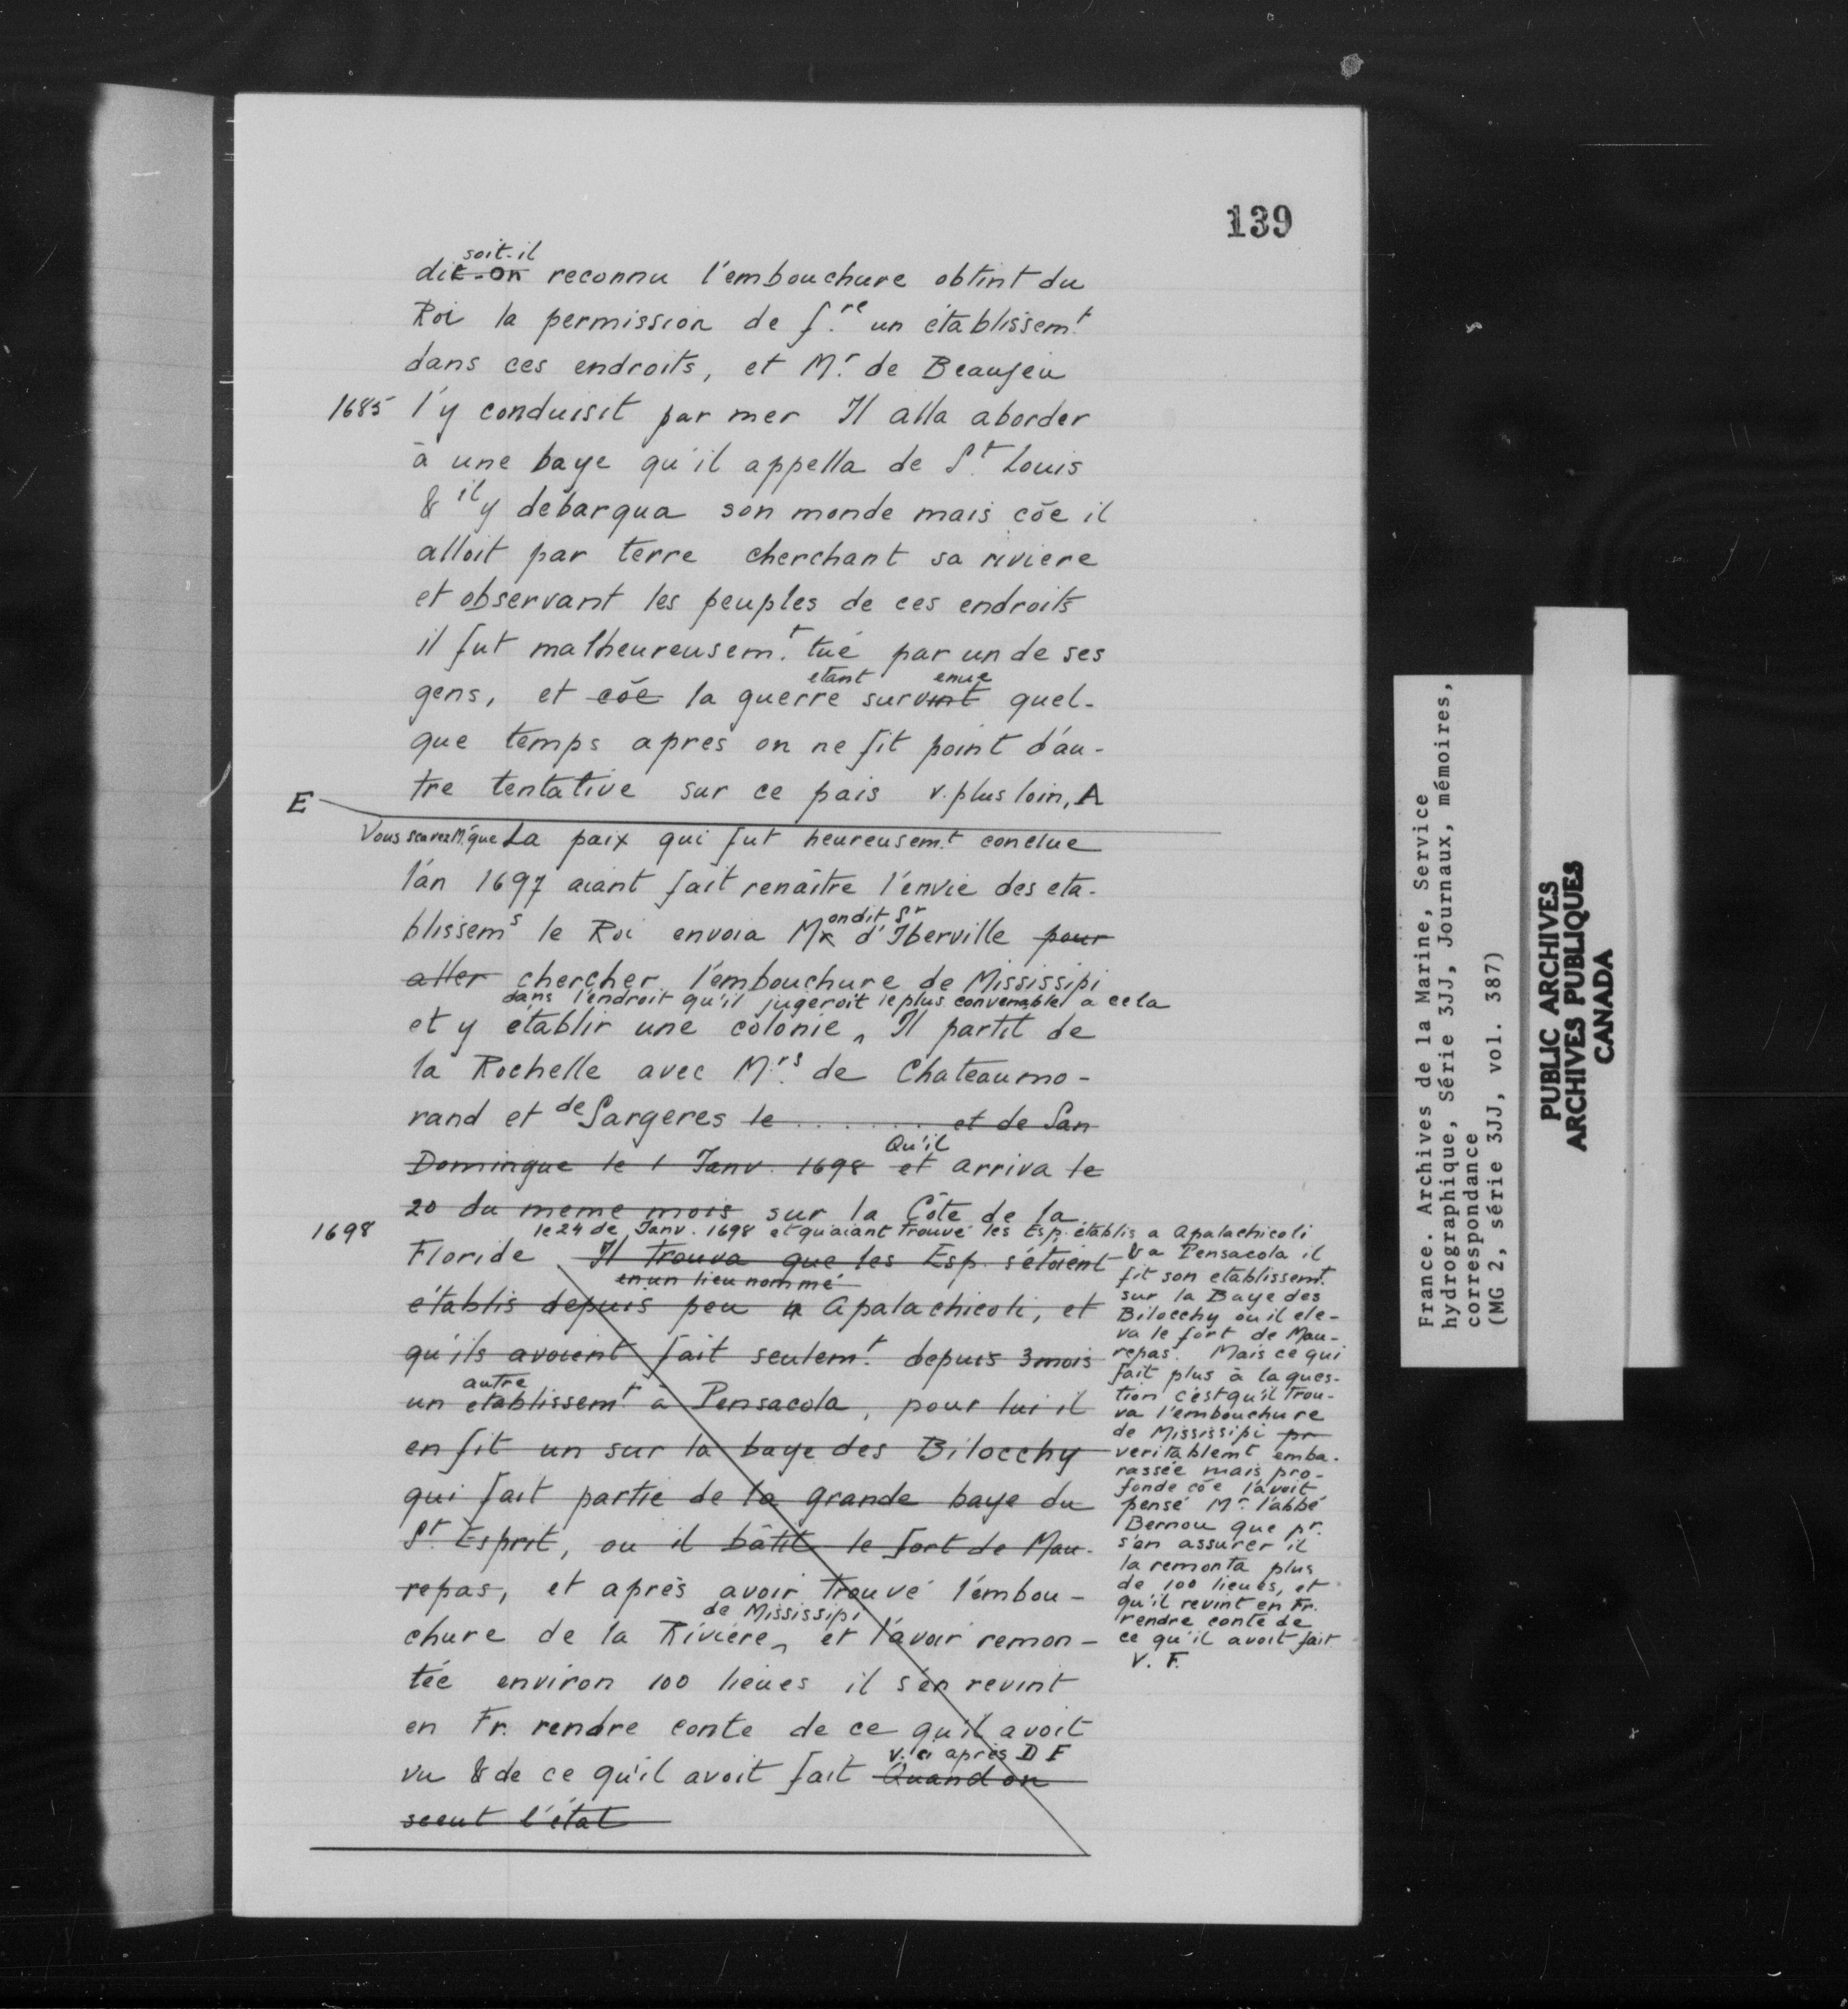 139
soit-il
dit-on reconnu l'embouchure obtint du
Roi la permission de f.re un établissem.t
dans ces endroits, et M.r de Beaujeu
1685 l'y conduisit par mer Il alla aborder
à une baye qu'il appella de S.t Louis
& il y débarqua son monde mais cõe il
alloit par terre cherchant sa riviere
et observant les peuples de ces endroits
il fut malheureusem.t tué par un de ses
etant enue
gens, et cõe la guerre survint quel-
que temps apres on ne fit point d'au-
tre tentative sur ce pais v. plus loin, A
E
Vous scavez M.r que La paix qui fut heureusem.t conclue
l'an 1697 aiant fait renaître l'envie des eta-
ondit Sr
blissems le Roi envoia Mr d'Iberville pour
aller chercher l'embouchure de Mississipi
dans l'endroit qu'il jugeroit le plus convenable a cela
et y établir une colonie, Il partit de
la Rochelle avec M.rs de Chateaumo-
rand et de Sargeres le ....... et de San
Qu'il
Domingue le 1 Janv. 1698 et arriva le
20 du meme mois sur la Côte de la
1698 le 24 de Janv. 1698 et qu'aiant trouvé les Esp. établis a Apalachicoli
Floride Il trouva que les Esp. s'étoient
en un lieu nommé
établis depuis peu a Apalachicoli, et
qu'ils avoient fait seulem.t depuis 3 mois
autre
un etablissem.t à Pensacola, pour lui il
en fit un sur la baye des Bilocchy
qui fait partie de la grande baye du
S.t Esprit, ou il bâtit le fort de Mau-
repas, et après avoir trouvé l'embou-
de Mississipi
chure de la Rivière, et l'avoir remon-
tée environ 100 lieues il s'en revint
en Fr. rendre conte de ce qu'il avoit
v. ci après D F
vu & de ce qu'il avoit fait Quand on
sceut l'état
& a Pensacola il
fit son etablissem.t
sur la Baye des
Bilocchy ou il ele-
va le fort de Mau-
repas. Mais ce qui
fait plus à la ques-
tion c'est qu'il trou-
va l'embouchure
de Mississipi pr
veritablemt emba-
rassée mais pro-
fonde cõe l'avoit
pensé M.r l'abbé
Bernou que pr.
s'en assurer il
la remonta plus
de 100 lieues, et
qu'il revint en Fr.
rendre conte de
ce qu'il avoit fait
V. F.
France. Archives de la Marine, Service
hydrographique, Série 3JJ, Journaux, mémoires,
correspondance
(MG 2, série 3JJ, vol. 387)
PUBLIC ARCHIVES
ARCHIVES PUBLIQUES
CANADA